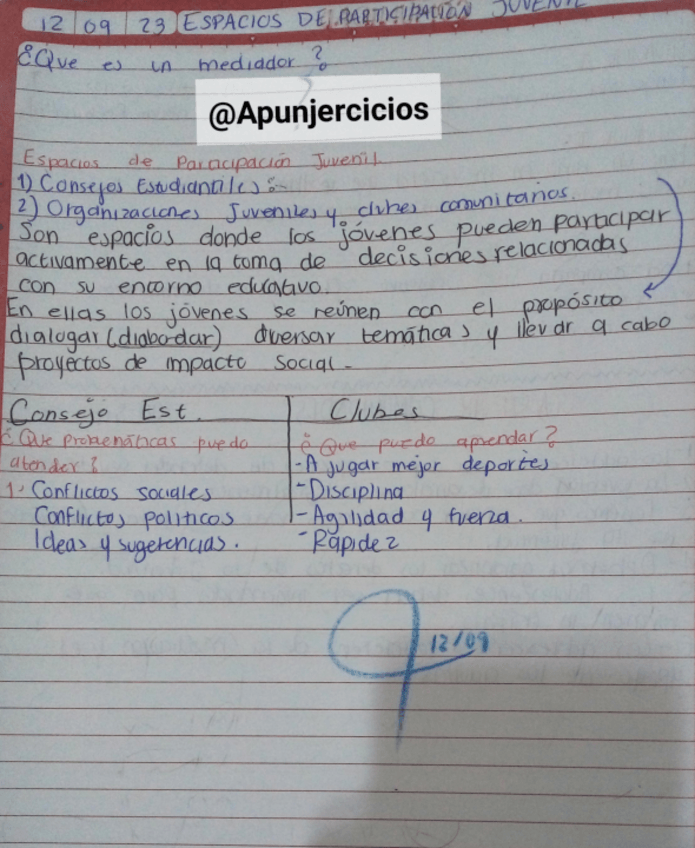 12 09 23 ESPACIOS DE PARTICIPACIÓN JUVENIL
¿Que es un mediador?
@Apunjercicios
Espacios de Paracipación Juvenil
1) Consejos Estudiantiles:
2) Organizaciones Juveniles y clubes comunitarios.
Son espacios donde los jóvenes pueden participar
activamente en la toma de decisiones relacionadas
con su entorno educativo.
En ellas los jóvenes se reúnen con el propósito
dialogar (diabordar) diversar temáticas y llevar a cabo
proyectos de impacto social.
Consejo Est. Clubes
¿Que problemáticas puedo
atender?
1. Conflictos sociales
Conflictos politicos
Ideas y sugerencias.
¿Que puedo aprendar?
- A jugar mejor deportes
- Disciplina
- Agilidad y fuerza.
- Rapidez
12/09